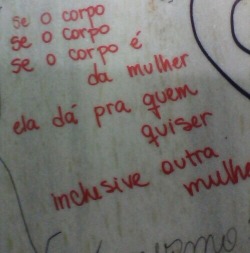 se o corpo
se o corpo
se o corpo é
da mulher
ela dá pra quem
quiser
inclusive outra
mulhe